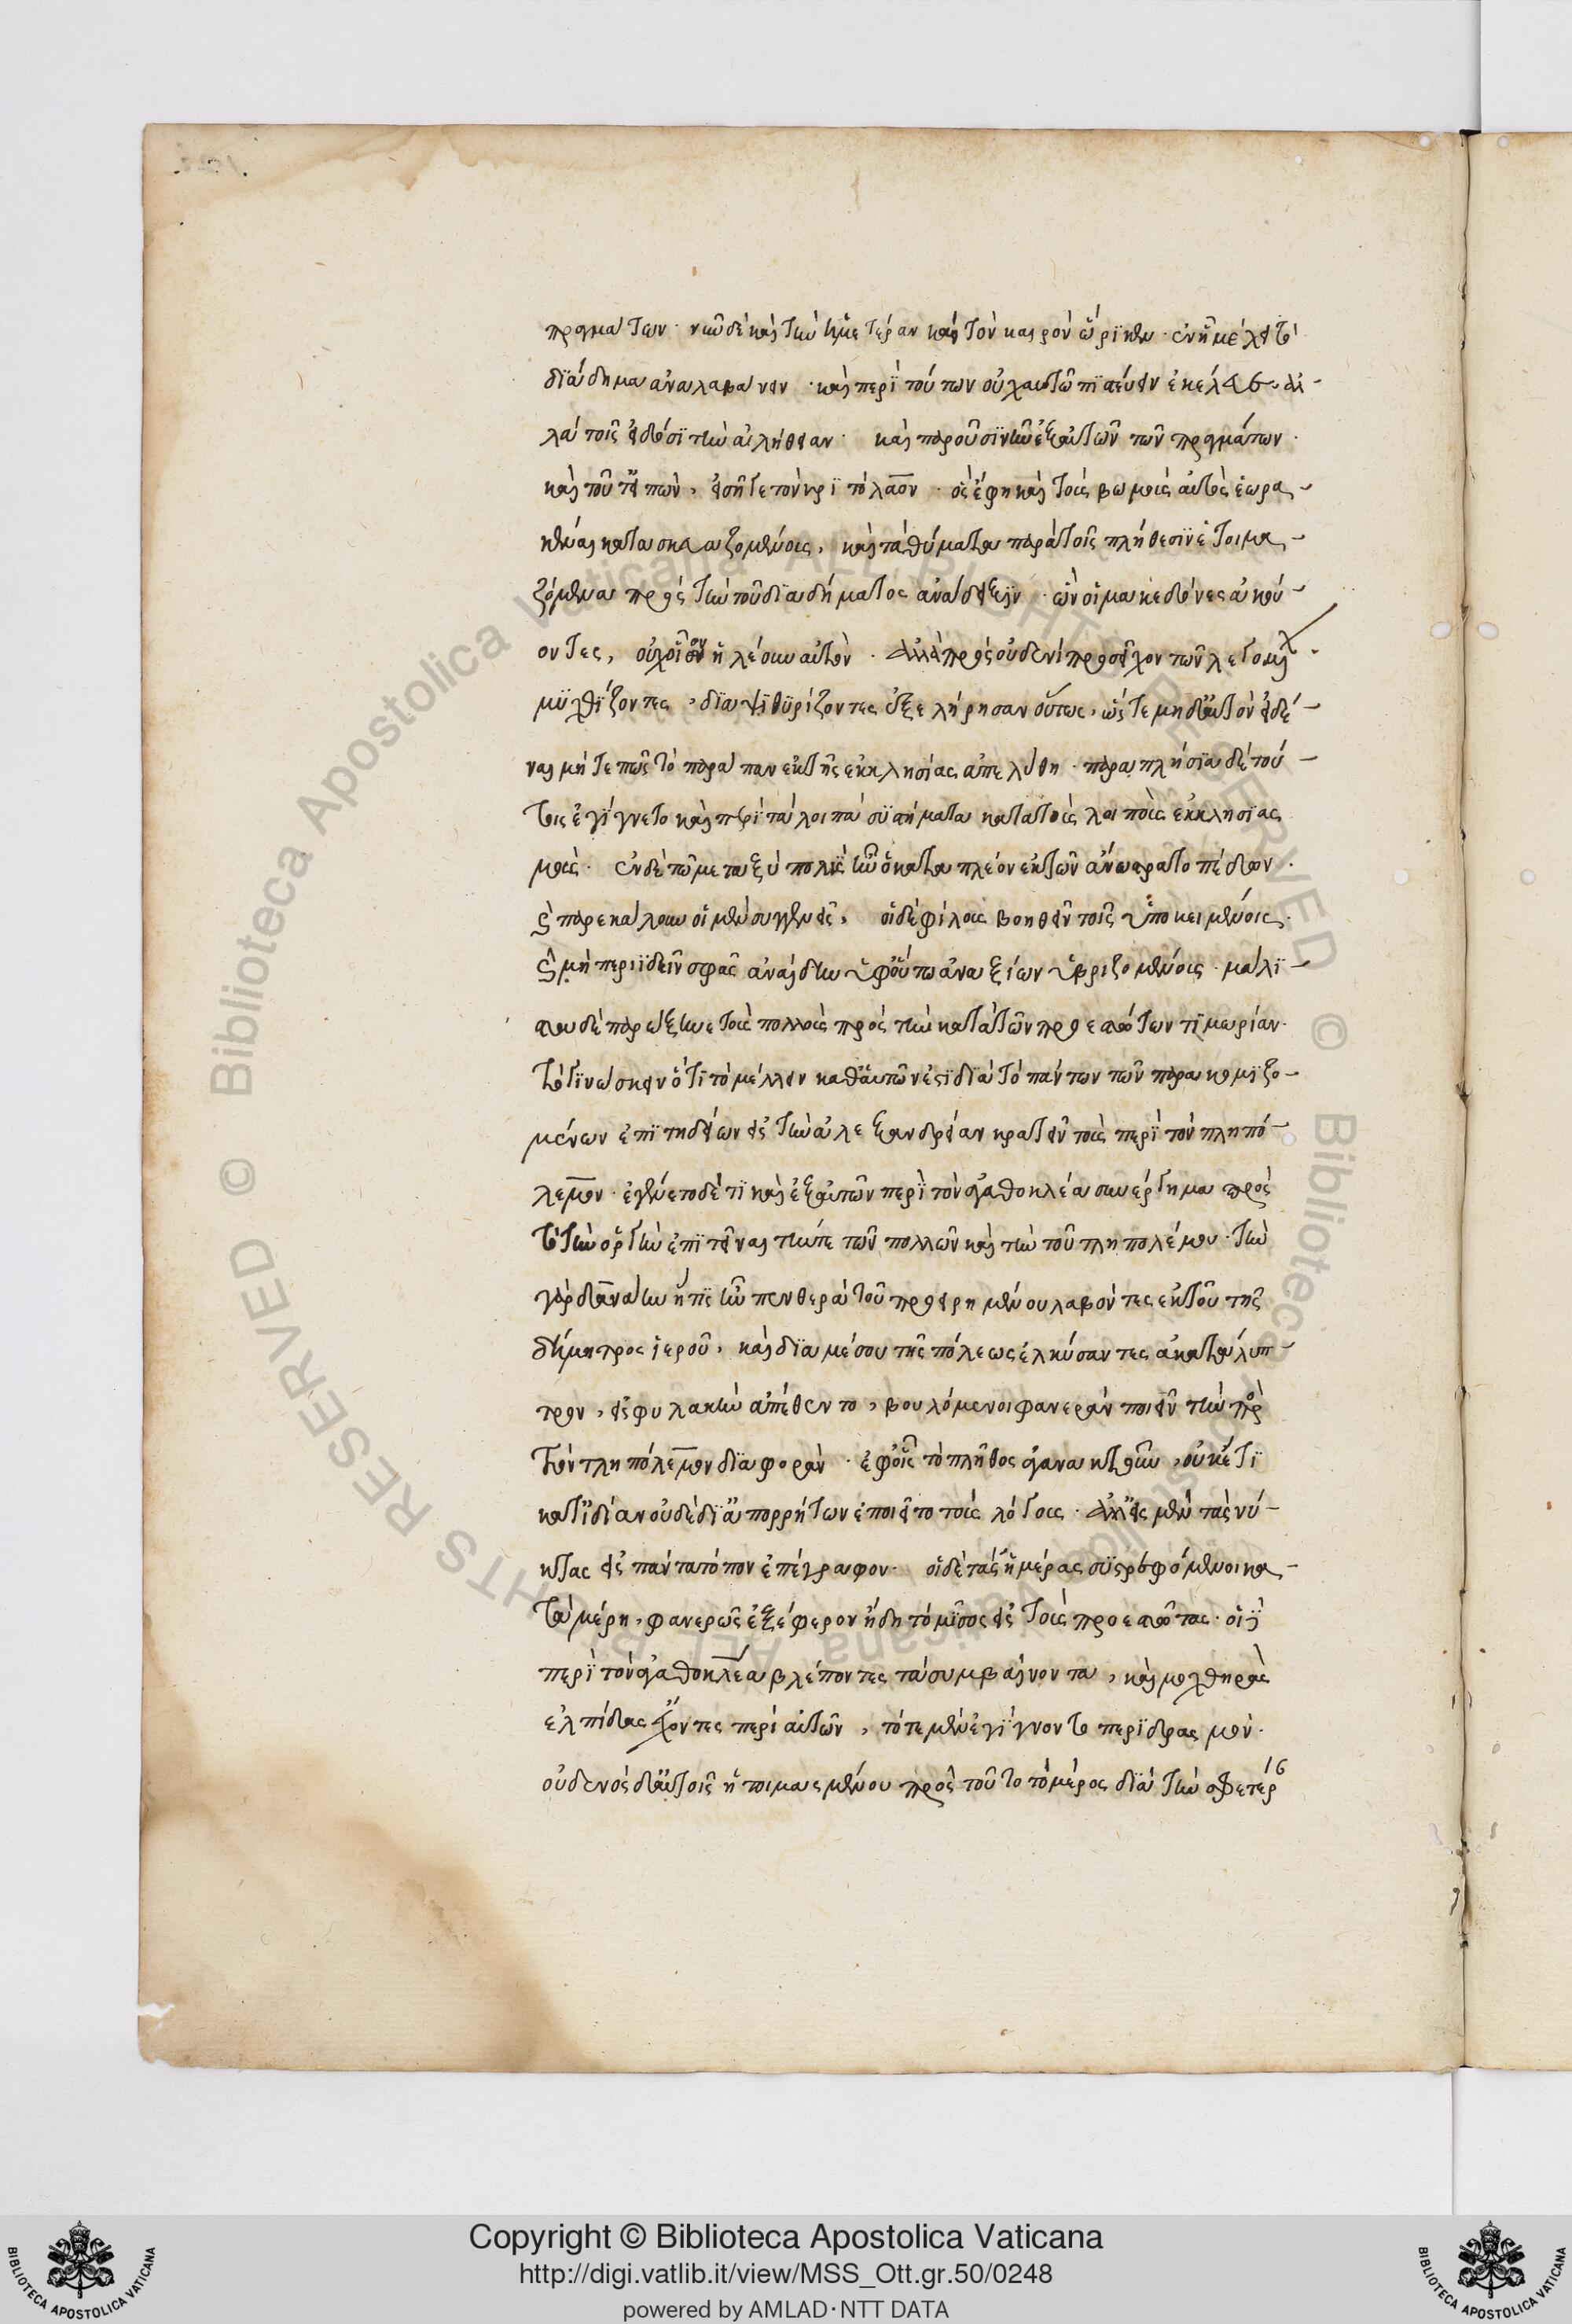 πραγμάτων· νῦν δὲ καὶ τὴν ἡμέραν καὶ τὸν καιρὸν ὥρικεν· ἐν ᾗ μέλει τὸ
διάδημα ἀναλαβάνειν· καὶ περὶ τούτων οὐχ αυτῷ πιστεύειν ἐκέλευεν ἀλ-
λὰ τοῖς εἰδόσι τὴν ἀλήθειαν· καὶ παροῦσι νῦν ἐξ αὐτῶν τῶν πραγμάτων·
καὶ τοῦτ' εἰπὼν, εἰσῆγε τὸν κριτόλαον· ὃς ἔφη καὶ τοὺς βωμοὺς αὐτὸς ἑωρα-
κέναι κατασκευαζομένους, καὶ τὰ θύματα παρὰ τοῖς πλήθεσιν ἑτοιμα-
ζόμενα πρὸς τὴν τοῦ διαδήματος ἀνάδειξιν· ὧν οἱ μακεδόνες ἀκού-
οντες, οὐχ οἷον ἠλέουν αὐτὸν· ἀλλὰ πρὸς οὐδενὶ προσεῖχον τῶν λεγομέ·
μυχθίζοντες, διαψιθυρίζοντες ἐξελήρησαν οὕτως, ὥστε μηδ' αὐτὸν εἰδέ-
ναι μήτε πῶς τὸ παράπαν ἐκ τῆς ἐκκλησίας ἀπελύθη· παραπλήσια δὲ τού-
τοις ἐγίγνετο καὶ περὶ τὰ λοιπὰ συστήματα κατὰ τοὺς λοιποὺς ἐκκλησιας
μοὺς· ἐν δὲ τῷ μεταξὺ πολὺς ἦν ὁ κατα πλέον ἐκ τῶν ἄνω στρατοπέδων·
καὶ παρεκάλουν οἱ μὲν συγγενεῖς, οἱ δὲ φίλους βοηθεῖν τοῖς ὑποκειμένοις·
καὶ μὴ περιιδεῖν σφᾶς ἀναίδην ὑφ' οὕτω ἀναξίων ὑβριζομένους· μάλι-
στα δὲ παρώξυνε τοὺς πολλοὺς πρὸς τὴν κατὰ τῶν προεστώτων τιμωρίαν·
τὸ γινώσκειν ὅτι τὸ μέλλειν καθ' αὑτῶν ἐστι διὰ τὸ πάντων τῶν παρακομιζο-
μένων ἐπιτηδείων εἰς τὴν ἀλεξανδρείαν κρατεῖν τοὺς περὶ τὸν τληπό-
λεμον· ἐγένετο δέ τι καὶ ἐξ αὐτῶν περὶ τὸν ἀγαθοκλέα συνέργημα πρὸς
τὸ τὴν ὀργὴν ἐπιτεῖναι τήν τε τῶν πολλῶν καὶ τὴν τοῦ τληπολέμου· τὴν
γὰρ δανάην ἥτις ἦν πενθερὰ τοῦ προειρημένου λαβόντες ἐκ τοῦ τῆς
δήμητρος ἱεροῦ, καὶ διὰ μέσου τῆς πόλεως ἑλκύσαντες ἀκατάλυπ-
τρον, εἰς φυλακὴν ἀπέθεντο, βουλόμενοι φανερὰν ποιεῖν τὴν πρὸς
τὸν τληπόλεμον διαφορὰν· ἐφ' οἷς τὸ πλῆθος ἀγανακτοῦν, οὐκέτι
κατ' ἰδίαν οὐδὲ δι' ἀπορρήτων ἐποιεῖτο τοὺς λόγους· ἀλλ' εἰς μὲν τὰς νύ-
κτας εἰς πάντα τόπον ἐπέγραφον· οἱ δὲ τὰς ἡμέρας συστρεφόμενοι κα-
τὰ μέρη, φανερῶς ἐξέφερον ἤδη τὸ μῖσος εἰς τοὺς προεστῶτας· οἱ δὲ
περὶ τὸν ἀγαθοκλέα βλέποντες τὰ συμβαίνοντα, καὶ μοχθηρὰς
ἐλπίδας ἔχοντες περὶ αὑτῶν, τότε μὲν ἐγίγνοντο περὶ δρασμόν·
οὐδενὸς δ' αὐτοῖς ἡτοιμασμένου πρὸς τοῦτο τὸ μέρος διὰ τὴν σφετέρ
Copyright © Biblioteca Apostolica Vaticana
http://digi.vatlib.it/view/MSS_Ott.gr.50/0248
powered by AMLAD·NTT DATA